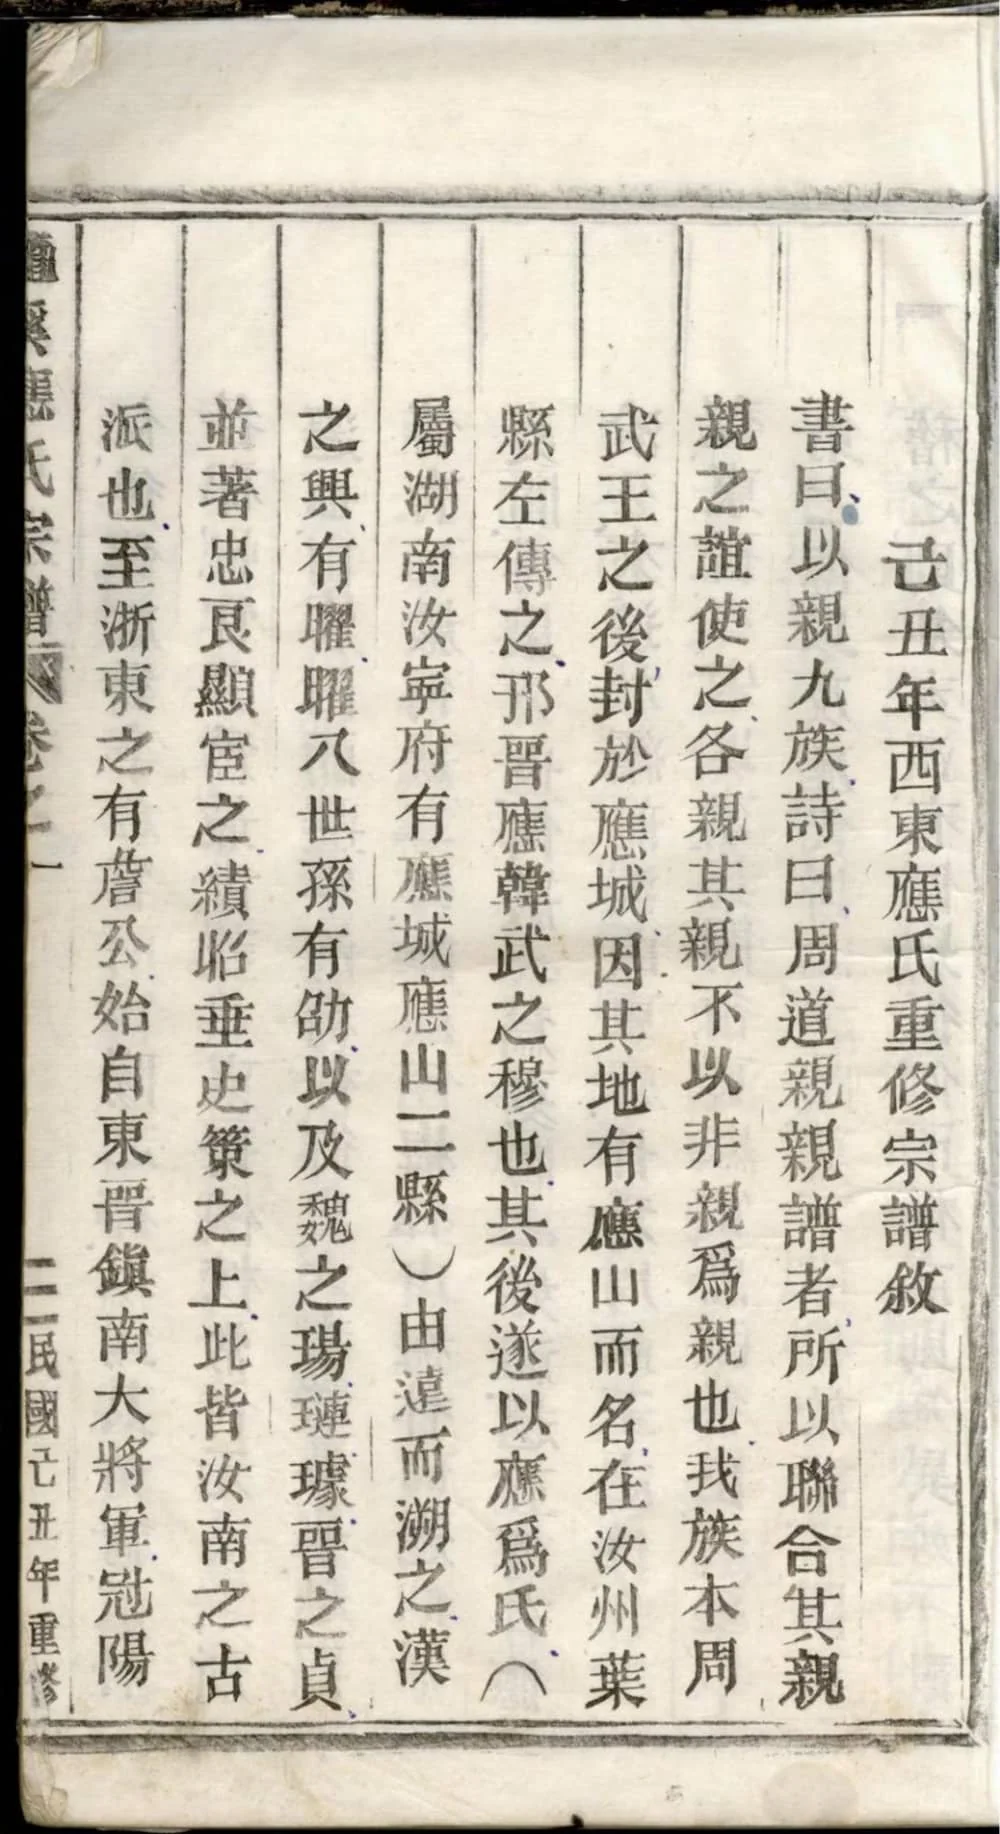 己丑年西東應氏重修宗譜敘
書曰以親九族詩曰周道親親譜者所以聯合其親
親之誼使之各親其親不以非親爲親也我族本周
武王之後封於應城因其地有應山而名在汝州葉
縣左傳之邘晉應韓武之穆也其後遂以應爲氏（
屬湖南汝寧府有應城應山二縣）由遠而溯之漢
之興有曜曜八世孫有劭以及魏之瑒璉璩晉之貞
並著忠良顯宦之績昭垂史策之上此皆汝南之古
派也至浙東之有詹公始自東晉鎮南大將軍冠陽
溪應氏宗譜 卷之一 二 民國己丑年重修